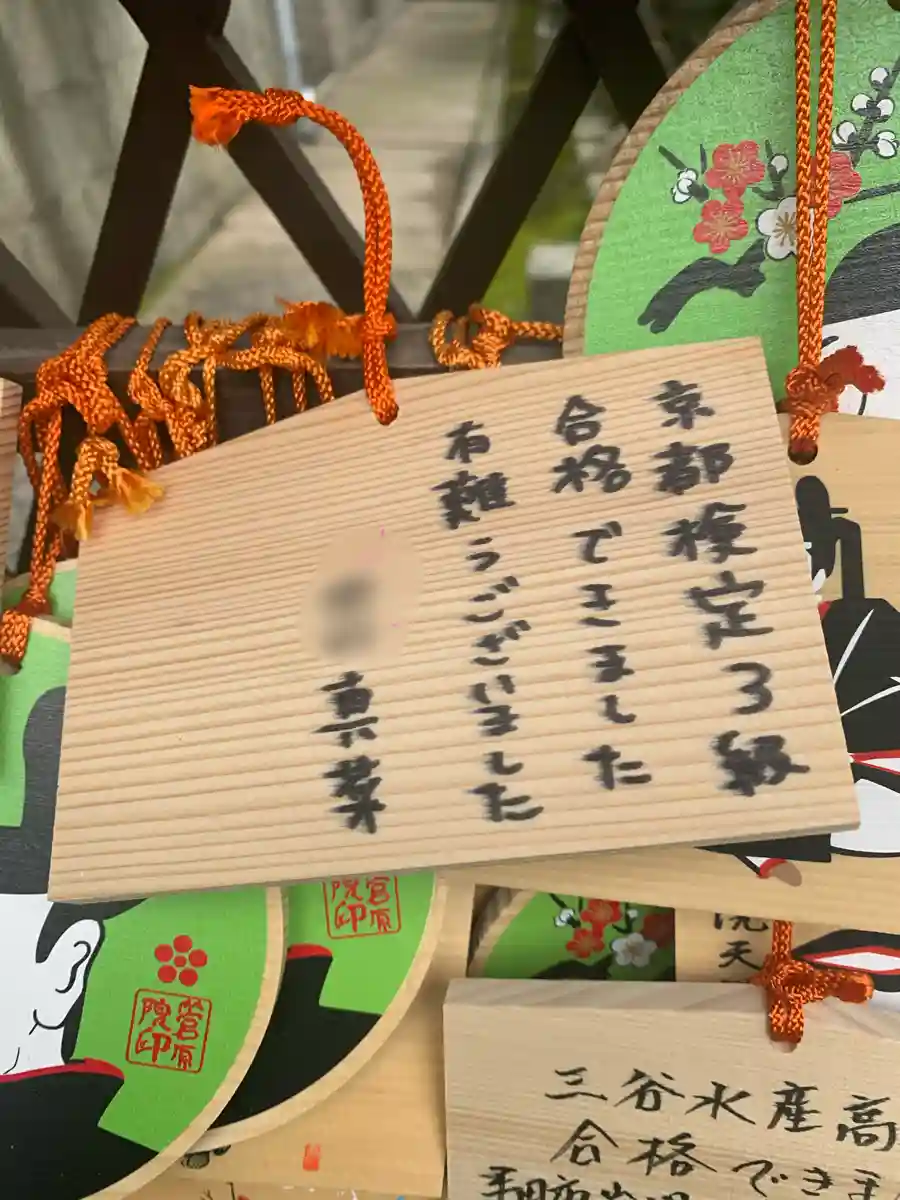 京都検定3級
合格できました
有難うございました
真葉
菅原
院印
菅原
院印
院天
三谷水産高
合格できま